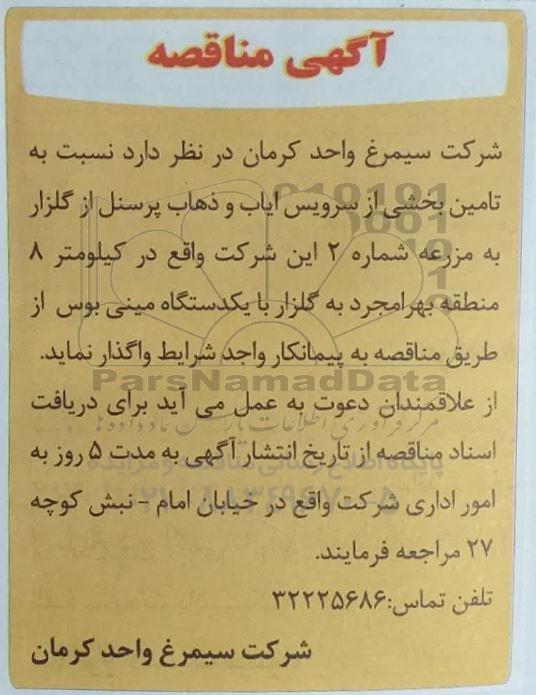 آگهی مناقصه
شرکت سیمرغ واحد کرمان در نظر دارد نسبت به
تامین بخشی از سرویس ایاب و ذهاب پرسنل از گلزار
به مزرعه شماره ۲ این شرکت واقع در کیلومتر ۸
منطقه بهرامجرد به گلزار با یکدستگاه مینی بوس از
طریق مناقصه به پیمانکار واجد شرایط واگذار نماید.
ParsNamadData
از علاقمندان دعوت به عمل می آید برای دریافت
اسناد مناقصه از تاریخ انتشار آگهی به مدت ۵ روز به
امور اداری شرکت واقع در خیابان امام - نبش کوچه
۲۷ مراجعه فرمایند.
تلفن تماس:۳۲۲۲۵۶۸۶
شرکت سیمرغ واحد کرمان